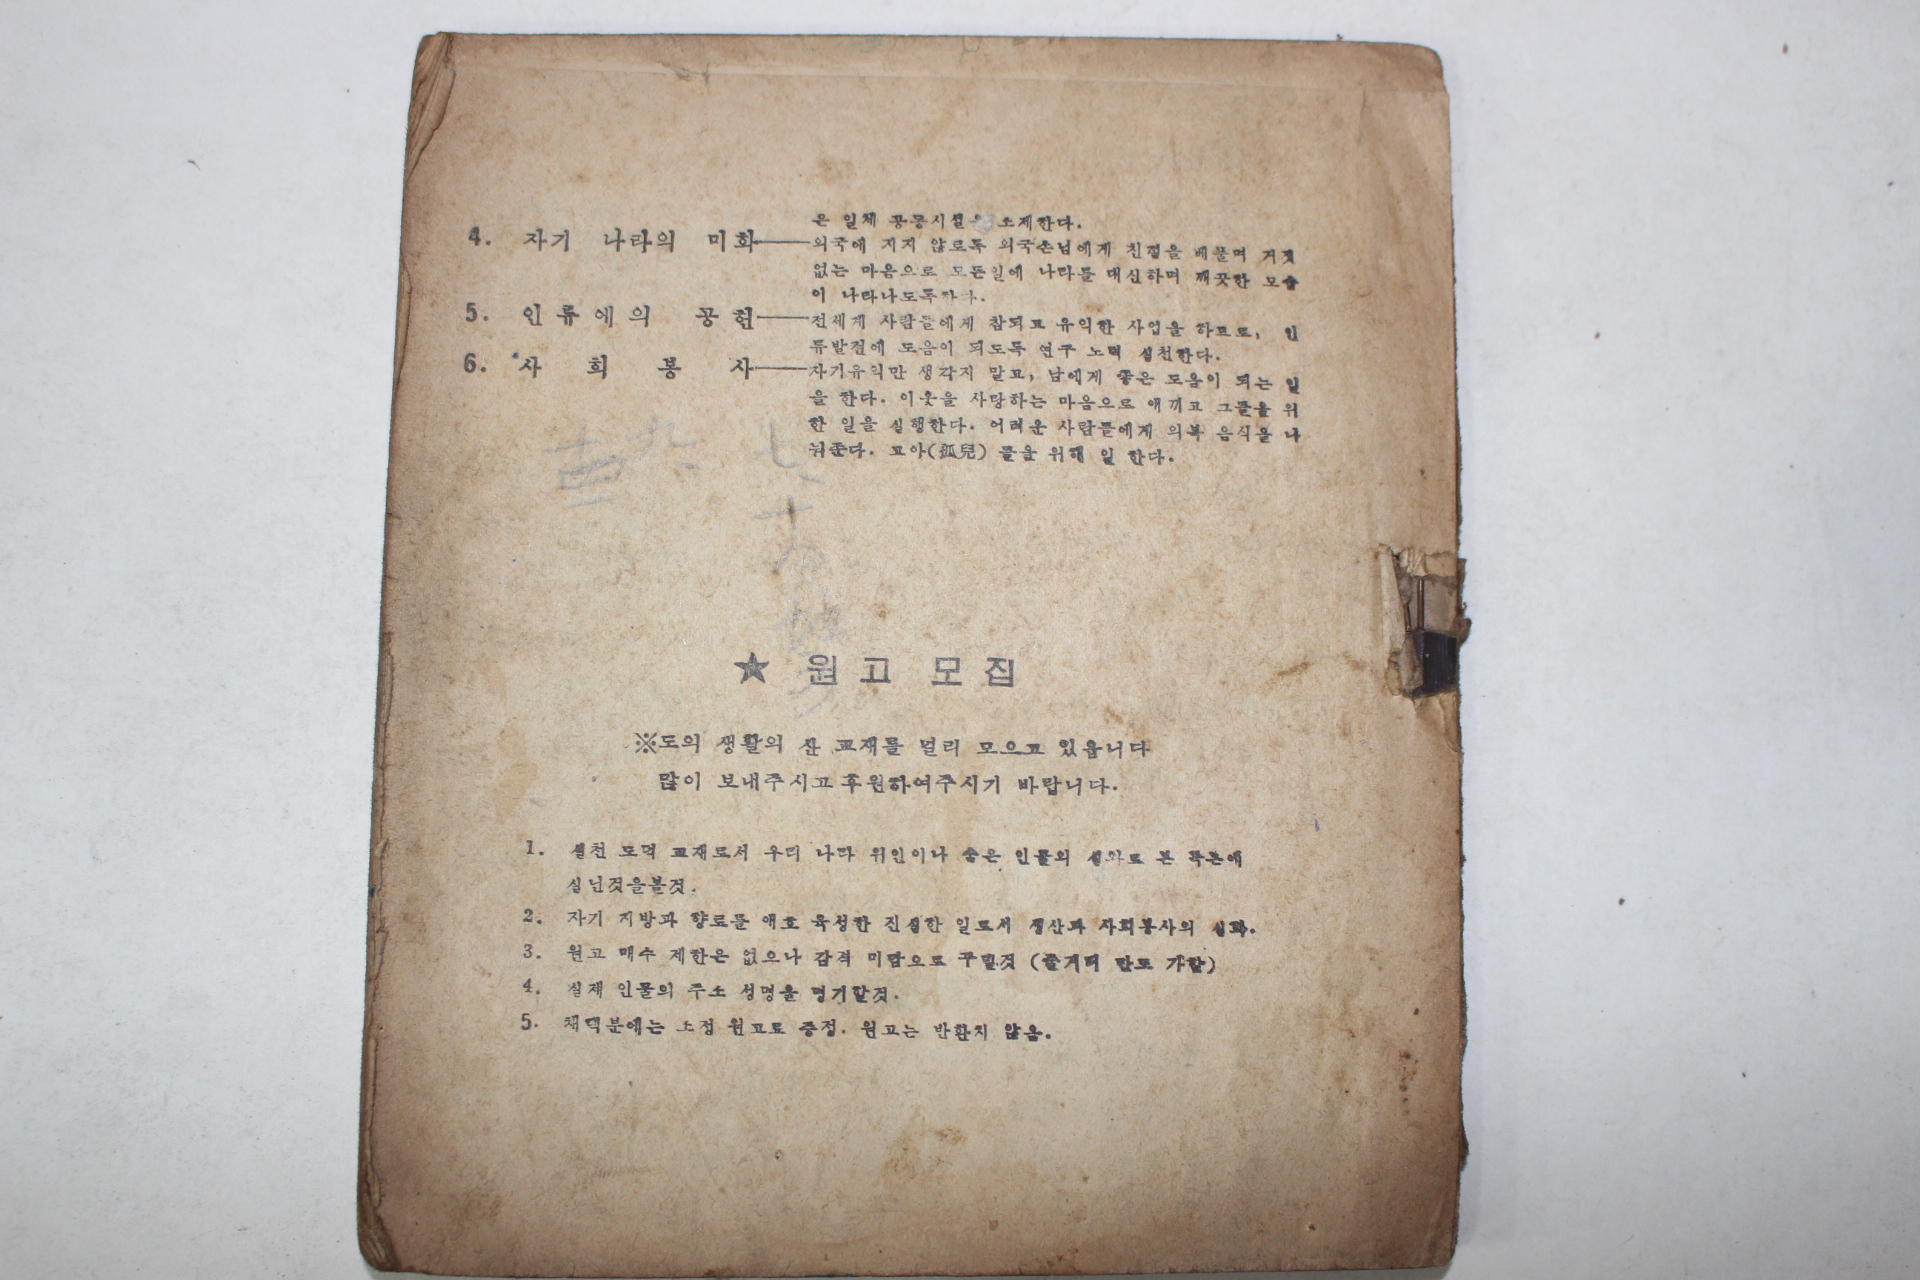 은 일체 공공시설 소제한다.
4. 자기 나라의 미화──외국에 지지 않로독 외국손님에게 친절을 베풀며 거짓
없는 마음으로 모든일에 나라를 대신하며 깨끗한 모습
이 나라나도독하다.
5. 인류에의 공헌──전세계 사람들에게 참되고 유익한 사업을 하고로, 인
류발전에 도음이 되도독 연구 노력 실천한다.
6. 사회봉사──자기유익만 생각지 말고, 남에게 좋은 도움이 되는 일
을 한다. 이웃을 사랑하는 마음으로 애끼고 그들을 위
한 일을 실행한다. 어려운 사람들에게 의복 음식을 나
눠준다. 고아(孤兒) 들을 위해 일 한다.
★ 원고 모집
※도의 생활의 산 교재를 널리 모으고 있읍니다
많이 보내주시고 후원하여주시기 바랍니다.
1. 실천 도덕 교재로서 우리 나라 위인이나 숨은 인물의 실화로 본 독본에
실닌것을볼것.
2. 자기 지방과 향로를 애호 육성한 진실한 일로서 생산과 사회봉사의 실화.
3. 원고 매수 제한은 없으나 감격 미담으로 꾸밀것 (줄거리 만도 가함)
4. 실재 인물의 주소 성명을 명기할것.
5. 채택분에는 소정 원고료 증정. 원고는 반환치 않음.